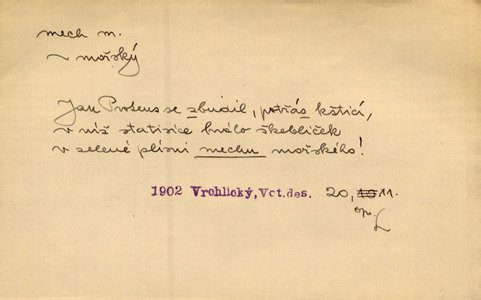 mech m.
~ mořský
Jak Proteus se zbudil, potřás kšticí,
v níž statisíce hrálo škebliček
v zelené plísni mechu mořského!
1902 Vrchlický, Vct.des. 20, 10 11.
opr. L